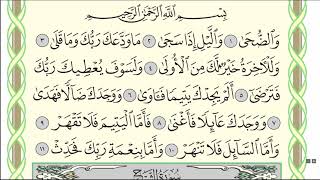 بِسْمِ اللَّهِ الرَّحْمَٰنِ الرَّحِيمِ
وَالضُّحَىٰ ١ وَاللَّيْلِ إِذَا سَجَىٰ ٢ مَا وَدَّعَكَ رَبُّكَ وَمَا قَلَىٰ ٣
وَلَلْآخِرَةُ خَيْرٌ لَّكَ مِنَ الْأُولَىٰ ٤ وَلَسَوْفَ يُعْطِيكَ رَبُّكَ
فَتَرْضَىٰ ٥ أَلَمْ يَجِدْكَ يَتِيمًا فَآوَىٰ ٦ وَوَجَدَكَ ضَالًّا فَهَدَىٰ
٧ وَوَجَدَكَ عَائِلًا فَأَغْنَىٰ ٨ فَأَمَّا الْيَتِيمَ فَلَا تَقْهَرْ ٩
وَأَمَّا السَّائِلَ فَلَا تَنْهَرْ ١٠ وَأَمَّا بِنِعْمَةِ رَبِّكَ فَحَدِّثْ ١١
سُورَةُ الشَّرْحِ